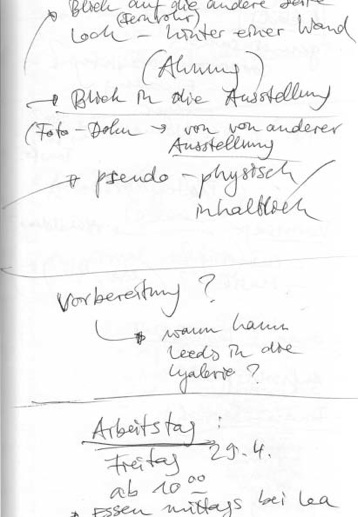 → Blick auf die andere Seite
(Fernrohr)
Loch – hinter einer Wand
(Ahnung)
→ Blick in die Ausstellung
(Foto-Dohn → von von anderer
Ausstellung
→ pseudo-physisch /
inhaltlich
Vorbereitung ?
→ wann kann
in die
Galerie ?
Arbeitstag :
Freitag 29.4.
ab 10 00
Essen mittags bei Lea